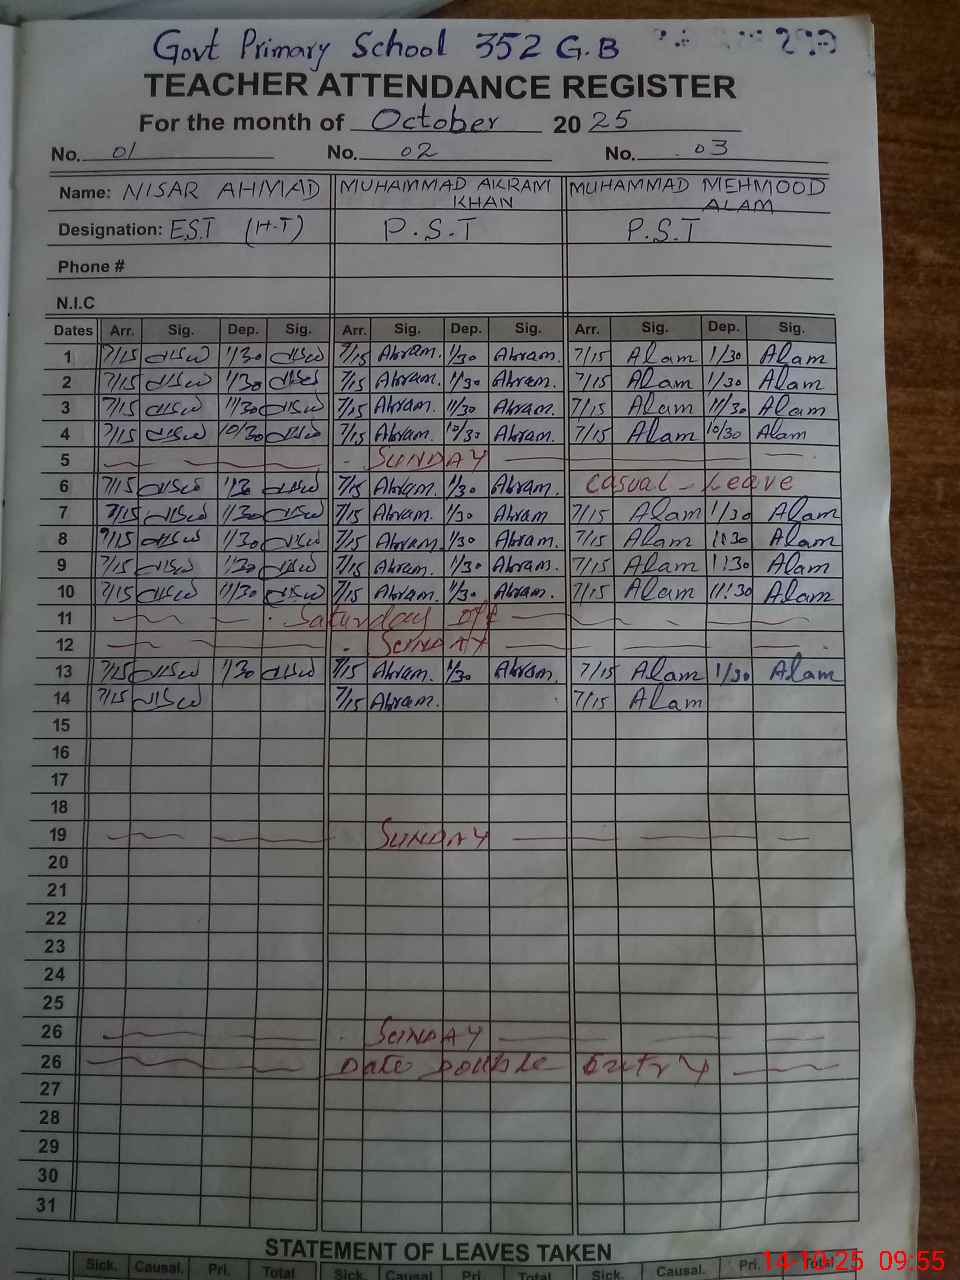 Govt Primary School 352 G.B
TEACHER ATTENDANCE REGISTER
For the month of October 20 25
No. 01 No. 02 No. 03
Name: NISAR AHMAD MUHAMMAD AKRAM KHAN MUHAMMAD MEHMOOD ALAM
Designation: E.S.T (H.T) P.S.T P.S.T
Phone #
N.I.C
Dates Arr. Sig. Dep. Sig. Arr. Sig. Dep. Sig. Arr. Sig. Dep. Sig.
1 7/15 1/30 7/15 Akram. 1/30 Akram. 7/15 Alam 1/30 Alam
2 7/15 1/30 7/15 Akram. 1/30 Akram. 7/15 Alam 1/30 Alam
3 7/15 11/30 7/15 Akram. 11/30 Akram. 7/15 Alam 11/30 Alam
4 7/15 10/30 7/15 Akram. 10/30 Akram. 7/15 Alam 10/30 Alam
5 SUNDAY
6 7/15 7/15 Akram. 1/30 Akram. Casual - Leave
7 7/15 1/30 7/15 Akram. 1/30 Akram 7/15 Alam 1/30 Alam
8 7/15 1/30 7/15 Akram. 1/30 Akram. 7/15 Alam 1:30 Alam
9 7/15 1/30 7/15 Akram. 1/30 Akram. 7/15 Alam 1:30 Alam
10 7/15 11/30 7/15 Akram. 11/30 Akram. 7/15 Alam 11:30 Alam
11 Saturday off
12 SUNDAY
13 7/15 1/30 7/15 Akram. 1/30 Akram. 7/15 Alam 1/30 Alam
14 7/15 7/15 Akram. 7/15 Alam
15
16
17
18
19 SUNDAY
20
21
22
23
24
25
26 SUNDAY
26 Date Double Entry
27
28
29
30
31
STATEMENT OF LEAVES TAKEN
Sick. Causal. Pri. Total Sick. Causal. Pri. Total Sick. Causal. Pri. Total
14-10-25 09:55